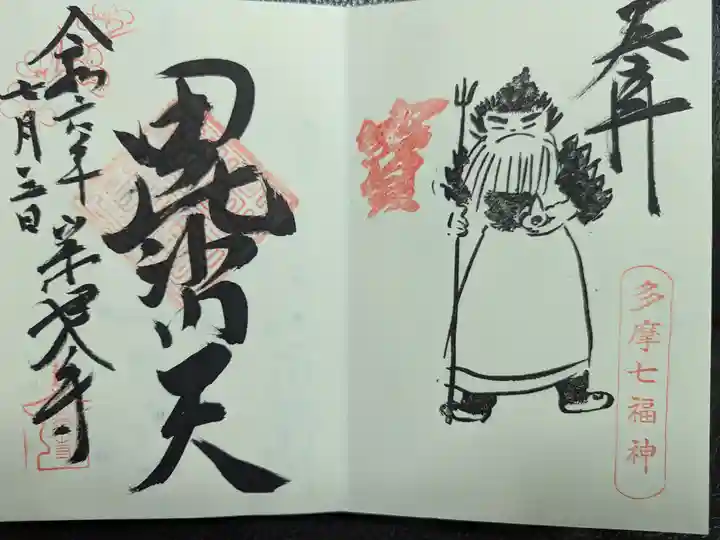 奉拝
多摩七福神
毘沙門天
令和六年
七月三日
宗建寺